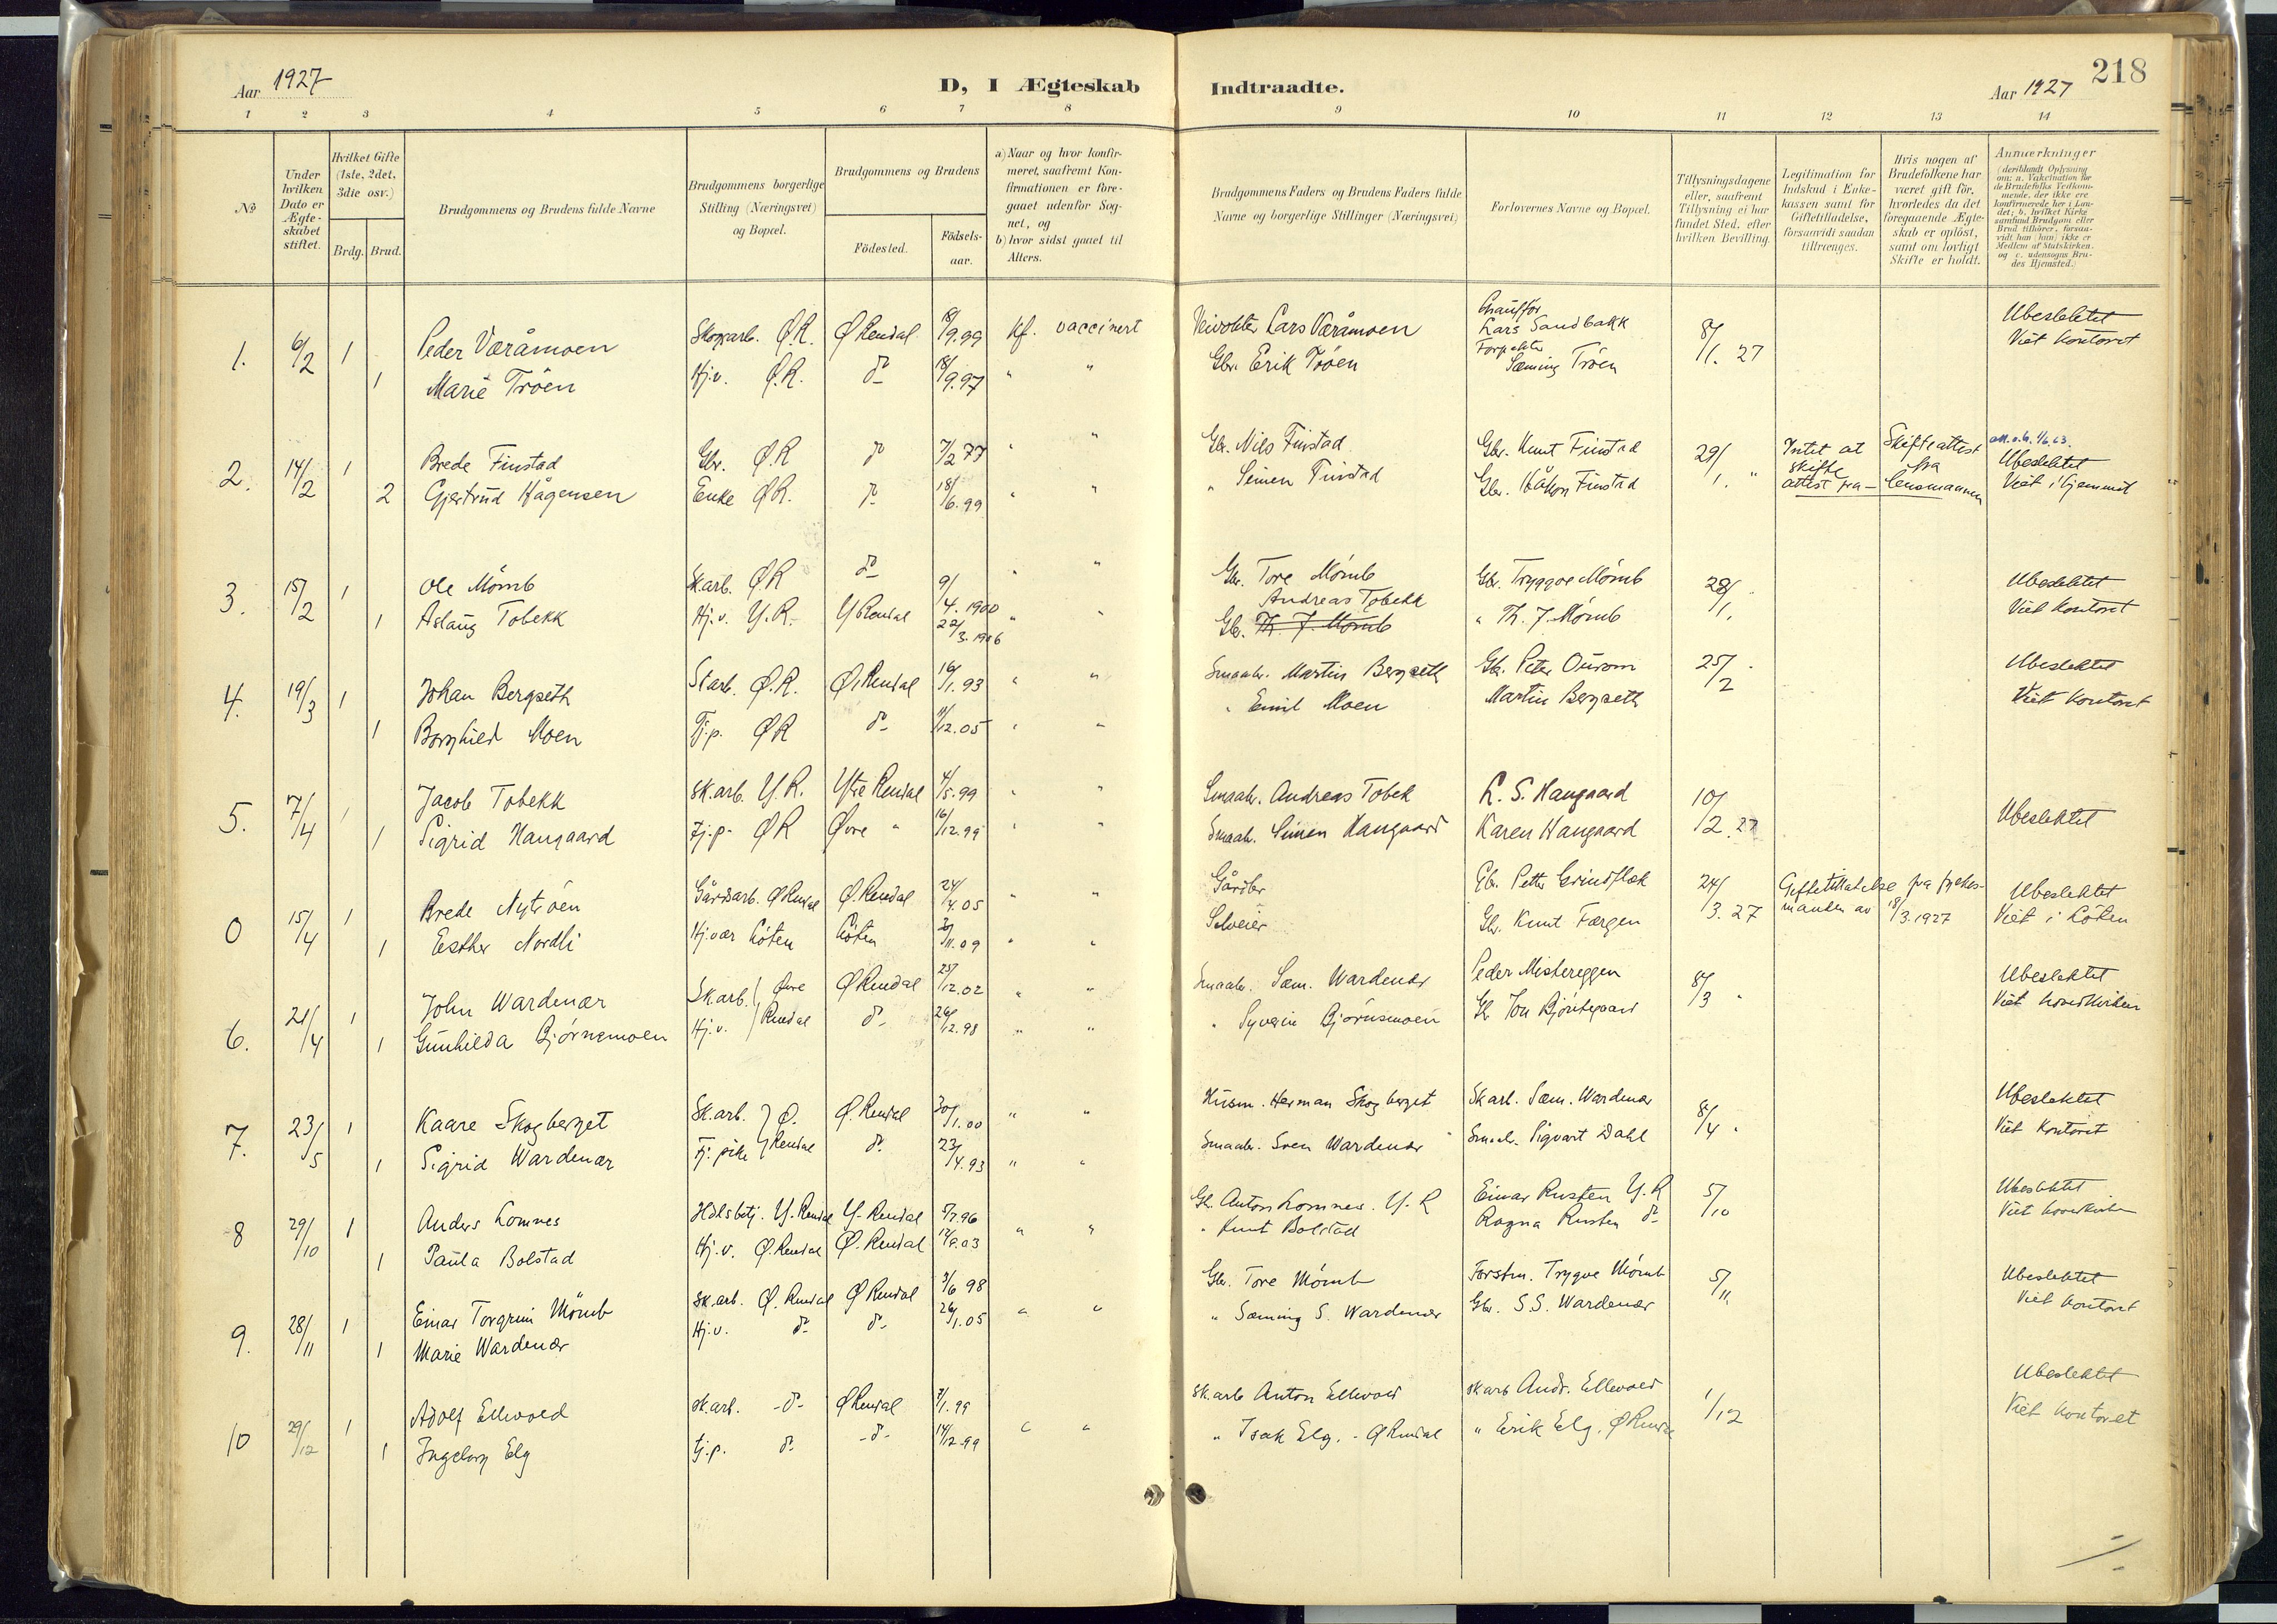 Aar 1927
D, I Ægteskab Indtraadte.
Aar 1927
218
1 2 3 4 5 6 7 8 9 10 11 12 13 14
№
Under hvilken Dato er Ægteskabet stiftet.
Hvilket Gifte (1ste, 2det, 3die osv.)
Brdg. Brud.
Brudgommens og Brudens fulde Navne
Brudgommens borgerlige Stilling (Næringsvei) og Bopæl.
Brudgommens og Brudens
Födested.
Födsels-aar.
a) Naar og hvor konfirmeret, saafremt Konfirmationen er foregaaet udenfor Sognet, og
b) hvor sidst gaaet til Alters.
Brudgommens Faders og Brudens Faders fulde Navne og borgerlige Stillinger (Næringsvei)
Forlovernes Navne og Bopæl.
Tillysningsdagene eller, saafremt Tillysning ei har fundet Sted, efter hvilken Bevilling.
Legitimation for Indskud i Enkekassen samt for Giftetilladelse, forsaavidt saadan tiltrænges.
Hvis nogen af Brudefolkene har været gift för, hvorledes da det foregaaende Ægteskab er oplöst, samt om lovligt Skifte er holdt.
Anmærkninger (deriblandt Oplysning om: a. Vakcination for de Brudefolks Vedkommende, der ikke ere konfirmerede her i Landet; b. hvilket Kirkesamfund Brudgom eller Brud tilhörer, forsaavidt han (hun) ikke er Medlem af Statskirken. og c. udensogns Brudes Hjemsted.)
1. 6/2 1 Peder Væråmoen Skogarb. Ø.R. Ø Rendal 18/9.99 kf. vaccinert Lars Væråmoen Chauffør Lars Sandbakk 8/1. 27 Ubeslektet
1 Marie Trøen Hj.v. Ø.R. do 18/9.97 " " Gbr. Erik Trøen Sæming Trøen Viet Kontoret
2. 14/2 1 Brede Finstad Gbr. Ø.R do 7/2 77 " " Gbr. Nils Finstad Gbr. Knut Finstad 29/1. " Intet at skifte attest fra Skifteattest fra lensmannen Ubeslektet
2 Gjertrud Hågensen Enke Ø.R. do 18/6.99 " " " Simen Finstad Gbr. Håkon Finstad Viet i hjemmet
3. 15/2 1 Ole Mömb Sk.arb. Ø R do 9/4. 1900 " " Gbr. Tore Mömb Gbr. Tryggve Mömb 28/1. Ubeslektet
1 Aslaug Tobekk Hj.v. Y.R. Y Rendal 22/3. 1906 " " Gbr. Th. J. Mömb Andreas Tobekk " Th. J. Mömb Viet Kontoret
4. 19/3 1 Johan Bergseth Ø.R. Ø. Rendal 16/1.93 " " Smaabr. Martin Bergseth Gb. Peter 25/2 Ubeslektet
1 Borghild Moen Tj.p. Ø R do 11/12.05 " " " Emil Moen Martin Bergseth Viet Kontoret
5. 7/4 1 Jacob Tobekk sk.arb. Y.R. Ytre Rendal 4/5.99 " " Smaabr. Andreas Tobek L. S. Haugaard 10/2. 27 Ubeslektet
1 Sigrid Haugaard Tj.p. Ø R Øvre " 16/12.99 " " Smaabr. Simen Haugaard Karen Haugaard
0 15/4 1 Brede Nytröen Gårdsarb. Ø Rendal Ø. Rendal 24/4.05 " " Gårdbr Gb. Petter Grindflek 24/3. 27 Giftetillatelse fra fylkesmanden av 18/3.1927 Ubeslektet
1 Esther Nordli Hj.vær Löten Löten /11.09 " " Selveier Gb. Knut Færgen Viet i Löten
6. 21/4 1 John Wardenær Sk.arb. Øvre Rendal Ø Rendal 25/12.02 " " Smaabr. Sæm. Wardenær Peder Mistereggen 8/3 " Ubeslektet
1 Gunhilda Bjørnsmoen Hj.v. do 26/12.98 " " " Syverin Bjørnsmoen Gb Jon Viet hovedkirken
7. 23/5 1 Kaare Skogberget Sk.arb. Ø. Rendal Ø. Rendal 30/1.00 " " Husm. Herman Skogberget Sk.arb. Sæm. Wardenær 8/4 " Ubeslektet
1 Sigrid Wardenær Tj.pike do 23/4.93 " " Smaabr. Sven Wardenær Smaabr. Sigvart Dahl Viet Kontoret
8 29/10 1 Anders Lomnes Y. Rendal Y. Rendal 5/7.96 Gb. Anton Lomnes. Y. R Einar Rusten Y.R 5/10 Ubeslektet
1 Paula Bolstad Hj.v. Ø. Rendal Ø. Rendal 12/9.03 " " " Knut Bolstad Ragna Rusten do Viet hovedkirken
9. 28/11 1 Einar Torgrim Mömb Sk.arb. Ø. Rendal Ø Rendal 3/6 98 Gbr. Tore Mömb Forstm. Trygve Mömb 5/11. Ubeslektet
1 Marie Wardenær Hj.v. do do 26/1.05 " " " Sæming S. Wardenær Gbr. S.S. Wardenær Viet Kontoret
10 29/12 1 Adolf Ellevold sk.arb. -do- Ø Rendal 3/1.99 sk.arb Anton Ellevold skarb Andr. Ellevold 1/12 Ubeslektet
1 Ingeborg Elg tj.p. do -do- 14/12.99 " " " Isak Elg. - Ø Rendal " Erik Elg. Ø Rendal Viet kontoret